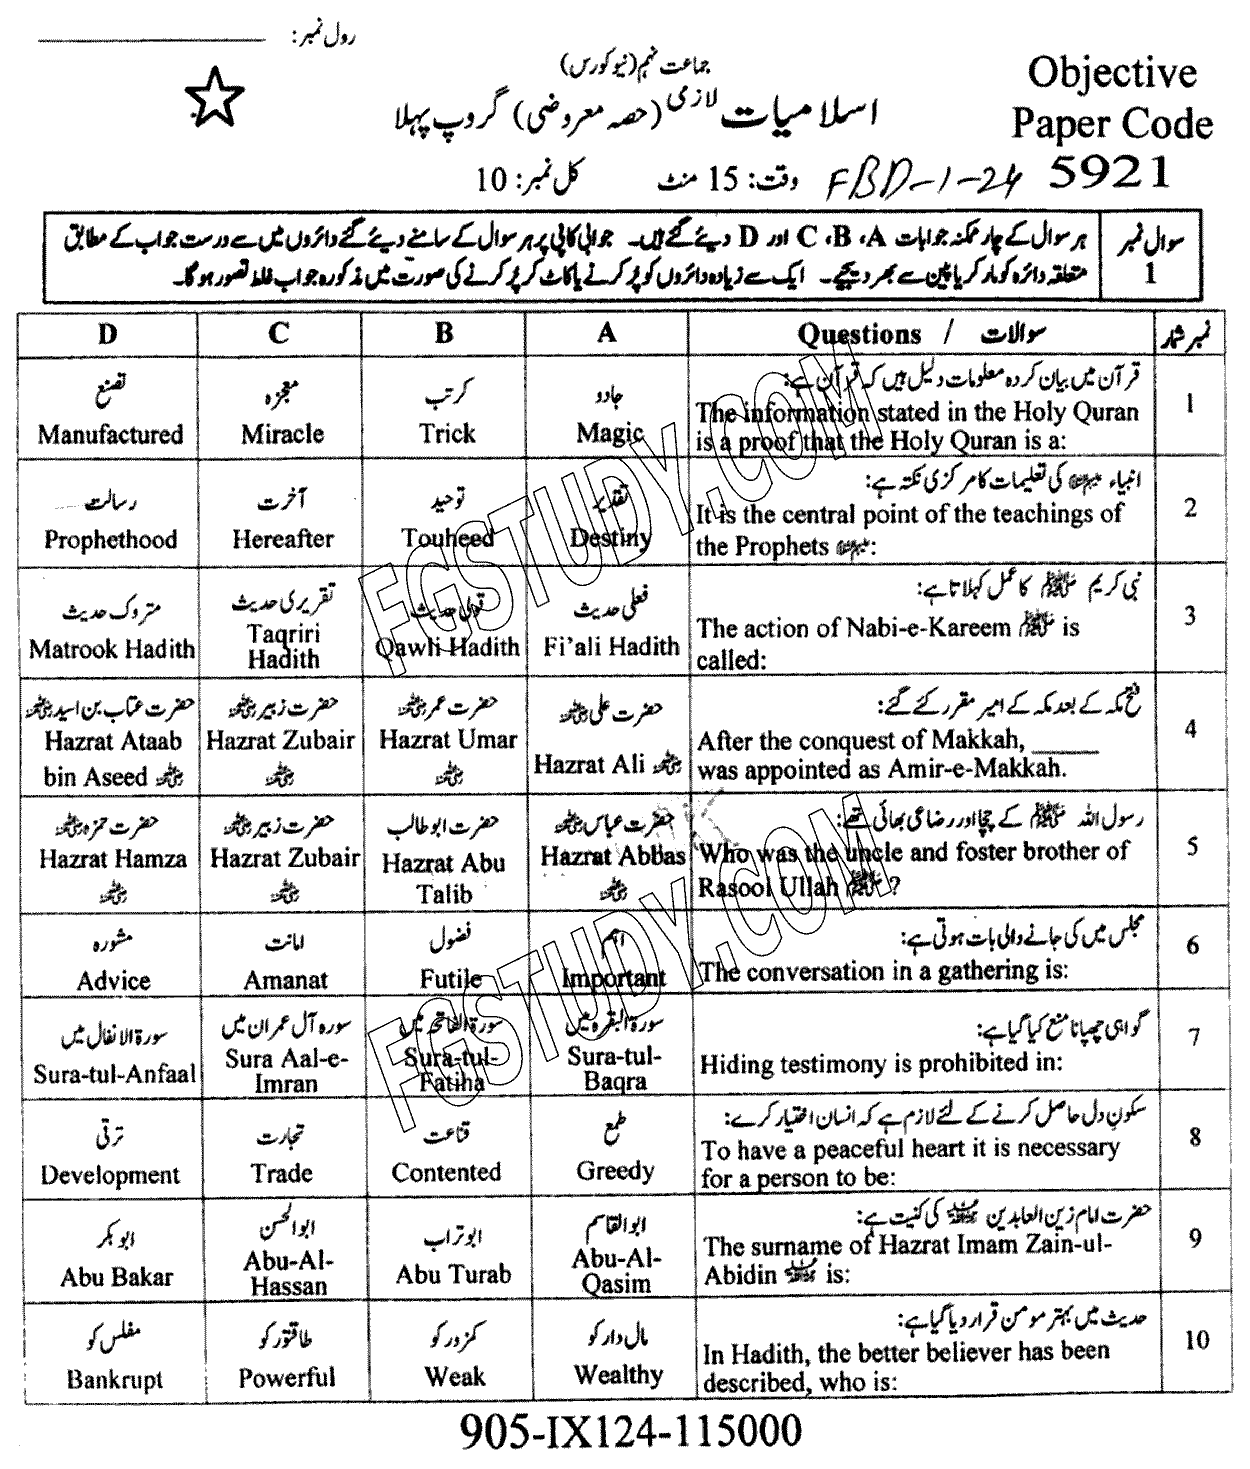 رول نمبر: ____________
جماعت نہم (نیو کورس)
اسلامیات لازمی (حصہ معروضی) گروپ پہلا
وقت: 15 منٹ کل نمبر: 10
Objective
Paper Code
5921
FBD-1-24
سوال نمبر 1
ہر سوال کے چار ممکنہ جوابات A، B، C اور D دیئے گئے ہیں۔ جوابی کاپی پر ہر سوال کے سامنے دیئے گئے دائروں میں سے درست جواب کے مطابق
متعلقہ دائرہ کو مارکر یا پین سے بھر دیجیے۔ ایک سے زیادہ دائروں کو پُر کرنے یا کاٹ کر پُر کرنے کی صورت میں مذکورہ جواب غلط تصور ہوگا۔
D C B A Questions / سوالات نمبر شمار
1
قرآن میں بیان کردہ معلومات دلیل ہیں کہ قرآن ہے:
The information stated in the Holy Quran
is a proof that the Holy Quran is a:
جادو
Magic
کرتب
Trick
معجزہ
Miracle
تصنع
Manufactured
2
انبیاء علیہم السلام کی تعلیمات کا مرکزی نکتہ ہے:
It is the central point of the teachings of
the Prophets علیہم السلام:
تقدیر
Destiny
توحید
Touheed
آخرت
Hereafter
رسالت
Prophethood
3
نبی کریم ﷺ کا عمل کہلاتا ہے:
The action of Nabi-e-Kareem ﷺ is
called:
فعلی حدیث
Fi’ali Hadith
قولی حدیث
Qawli Hadith
تقریری حدیث
Taqriri
Hadith
متروک حدیث
Matrook Hadith
4
فتح مکہ کے بعد مکہ کے امیر مقرر کئے گئے:
After the conquest of Makkah, _____
was appointed as Amir-e-Makkah.
حضرت علی رضی اللہ عنہ
Hazrat Ali رضی اللہ عنہ
حضرت عمر رضی اللہ عنہ
Hazrat Umar
رضی اللہ عنہ
حضرت زبیر رضی اللہ عنہ
Hazrat Zubair
رضی اللہ عنہ
حضرت عتاب بن اسید رضی اللہ عنہ
Hazrat Ataab
bin Aseed رضی اللہ عنہ
5
رسول اللہ ﷺ کے چچا اور رضاعی بھائی تھے:
Who was the uncle and foster brother of
Rasool Ullah ﷺ ?
حضرت عباس رضی اللہ عنہ
Hazrat Abbas
رضی اللہ عنہ
حضرت ابو طالب
Hazrat Abu
Talib
حضرت زبیر رضی اللہ عنہ
Hazrat Zubair
رضی اللہ عنہ
حضرت حمزہ رضی اللہ عنہ
Hazrat Hamza
رضی اللہ عنہ
6
مجلس میں کی جانے والی بات ہوتی ہے:
The conversation in a gathering is:
اہم
Important
فضول
Futile
امانت
Amanat
مشورہ
Advice
7
گواہی چھپانا منع کیا گیا ہے:
Hiding testimony is prohibited in:
سورۃ البقرہ میں
Sura-tul-
Baqra
سورۃ الفاتحہ میں
Sura-tul-
Fatiha
سورہ آل عمران میں
Sura Aal-e-
Imran
سورۃ الانفال میں
Sura-tul-Anfaal
8
سکونِ دل حاصل کرنے کے لئے لازم ہے کہ انسان اختیار کرے:
To have a peaceful heart it is necessary
for a person to be:
طمع
Greedy
قناعت
Contented
تجارت
Trade
ترقی
Development
9
حضرت امام زین العابدین علیہ السلام کی کنیت ہے:
The surname of Hazrat Imam Zain-ul-
Abidin علیہ السلام is:
ابوالقاسم
Abu-Al-
Qasim
ابوتراب
Abu Turab
ابوالحسن
Abu-Al-
Hassan
ابوبکر
Abu Bakar
10
حدیث میں بہتر مومن قرار دیا گیا ہے:
In Hadith, the better believer has been
described, who is:
مال دار کو
Wealthy
کمزور کو
Weak
طاقتور کو
Powerful
مفلس کو
Bankrupt
905-IX124-115000
FGSTUDY.COM
FGSTUDY.COM